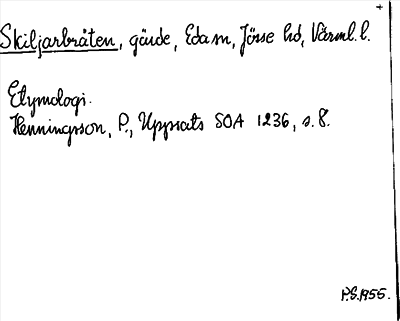 +
Skiljarbråten, gärde, Eda sn, Jösse hd, Värml. l.
Etymologi.
Henningsson, P., Uppsats SOA 1236, s. 8.
P.S. 1955.